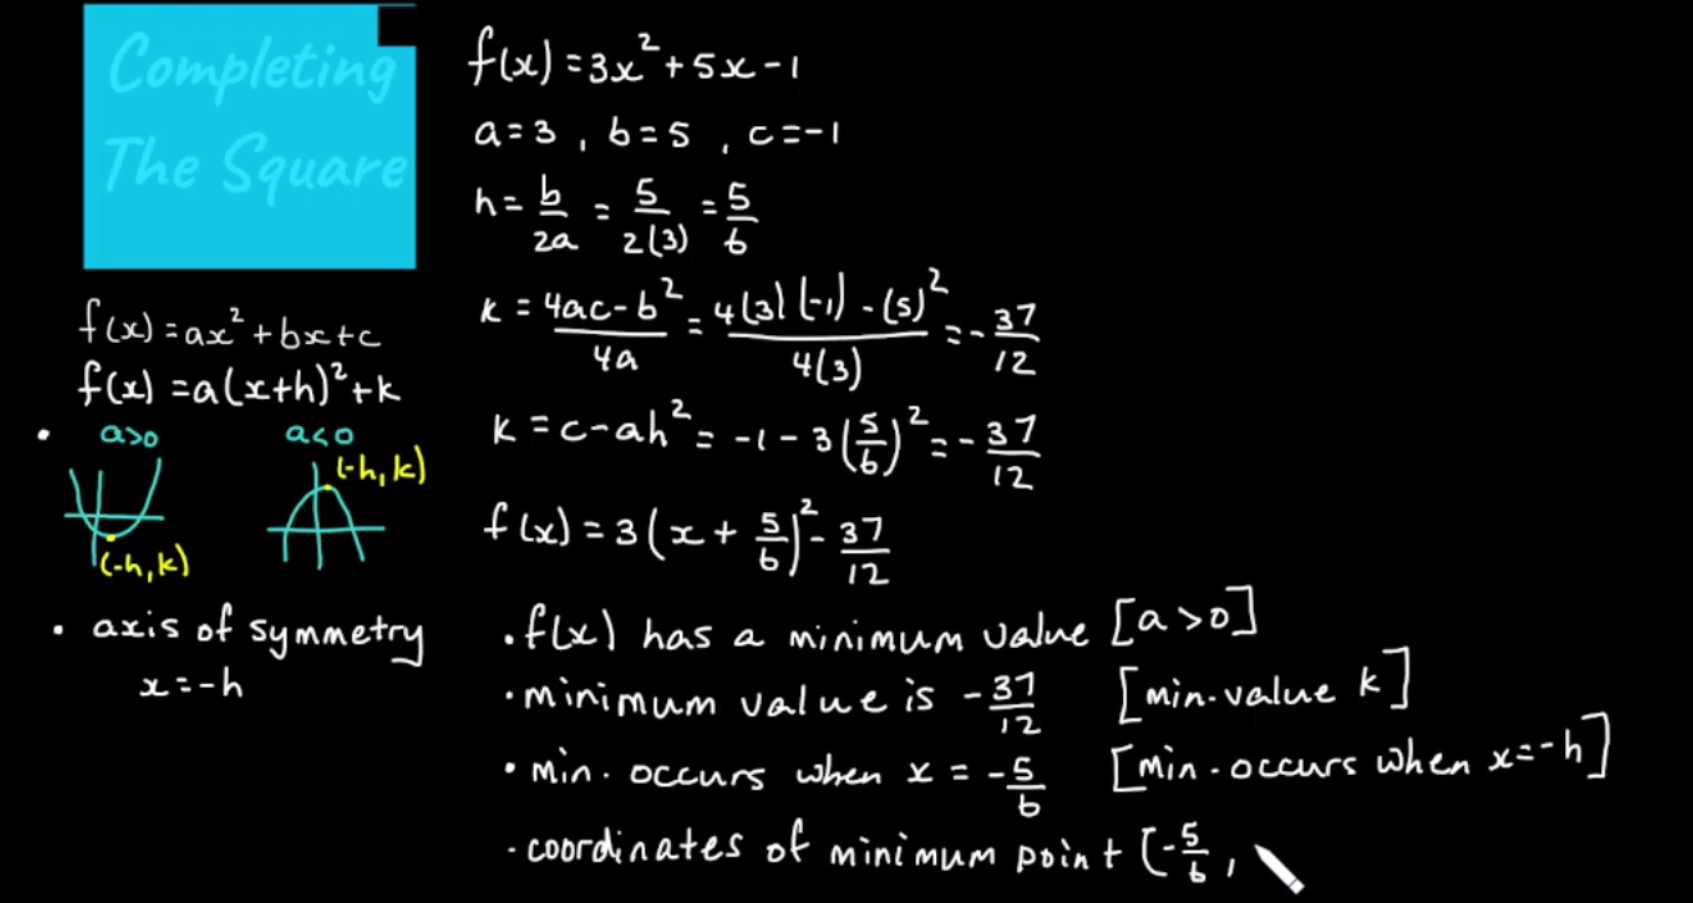 Completing
The Square
f(x) = ax² + bx + c
f(x) = a(x+h)² + k
• a>0 a<0
(-h, k)
(-h, k)
• axis of symmetry
x = -h
f(x) = 3x² + 5x - 1
a = 3 , b = 5 , c = -1
h = b/2a = 5/2(3) = 5/6
k = 4ac - b²/4a = 4(3)(-1) - (5)²/4(3) = - 37/12
k = c - ah² = -1 - 3(5/6)² = - 37/12
f(x) = 3(x + 5/6)² - 37/12
• f(x) has a minimum value [a > 0]
• minimum value is - 37/12 [min. value k]
• min. occurs when x = - 5/6 [min. occurs when x = -h]
• coordinates of minimum point (- 5/6 ,